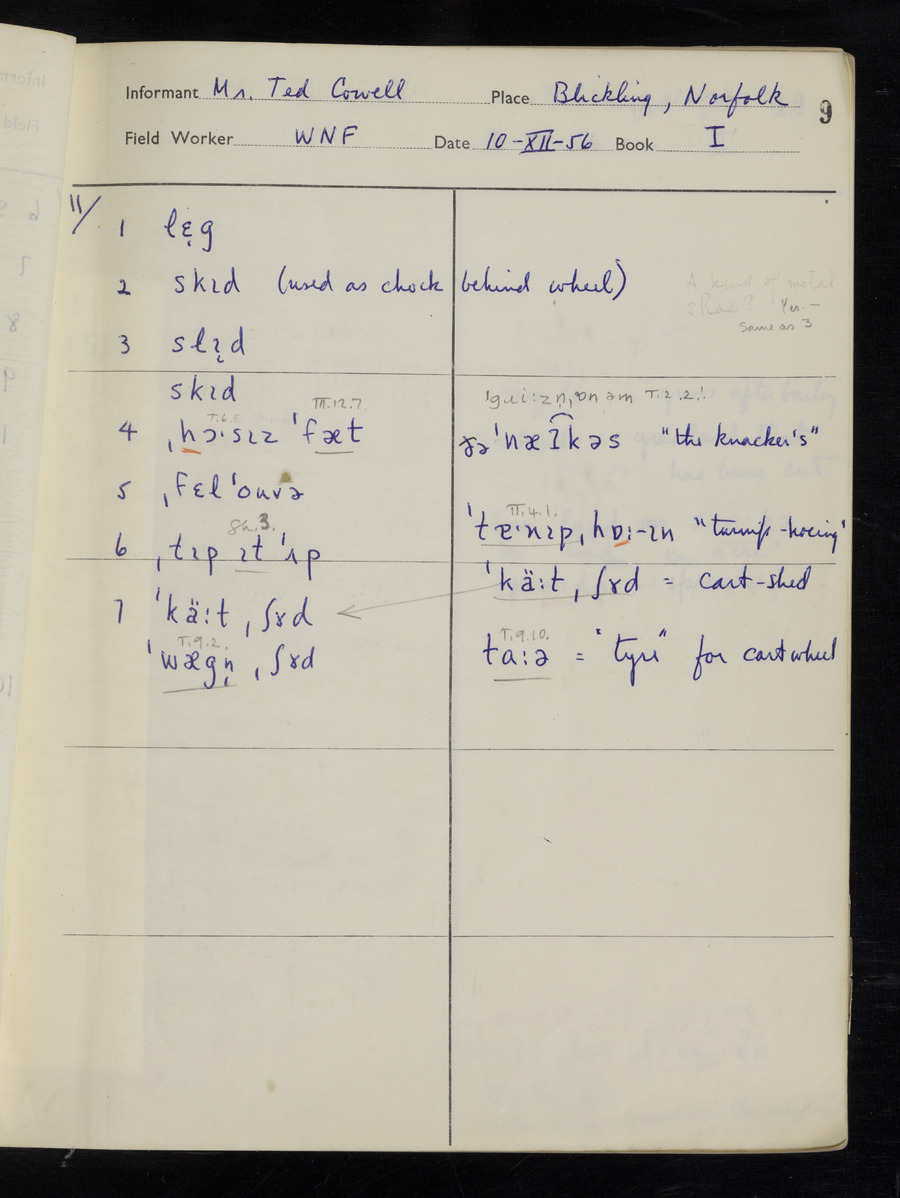 Informant Mr. Ted Cowell Place Blickling, Norfolk
9
Field Worker WNF Date 10-XII-56 Book I
11/
1 lɛ̣g
2 skɪd (used as chock behind wheel)
A kind of metal
shoe? Yes.—
Same as 3
3 slɪ̣d
skɪd
III.12.7.
I.6.5
4 ˌhɔ·sɪz ˈfæt
5 ˌfɛl ˈouvə
8h.3.
6 ˌtɪp ɪt ˈʌp
7 ˈkä:t ˌʃɤd
I.9.2.
ˈwægṇ ˌʃɤd
I.2.2.!
ˈnæʔ͡kəs "the knacker's"
II.4.1.
ˈtɐ·nɪpˌhɒ:-ɪn "turnip-hoeing"
ˈkä:t ˌʃɤd = cart-shed
I.9.10.
ta:ə = "tyre" for cartwheel